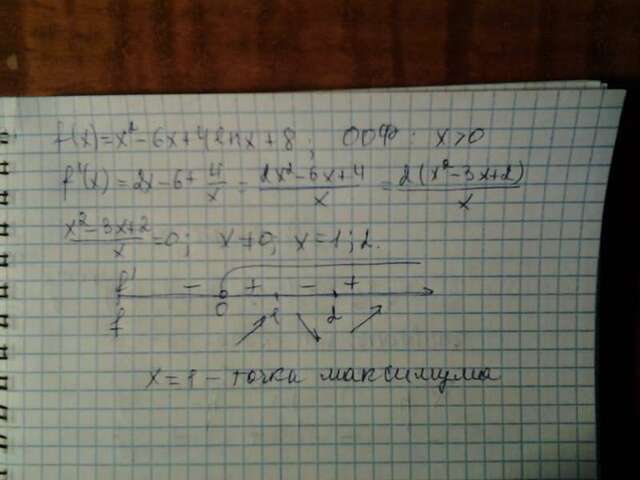 f(x)=x²-6x+4lnx+8; ООФ: x>0
f'(x)=2x-6+4/x=(2x²-6x+4)/x=2(x²-3x+2)/x
(x²-3x+2)/x=0; x≠0; x=1;2.
f' - + - +
0 1 2
f
x=1-точка максимума